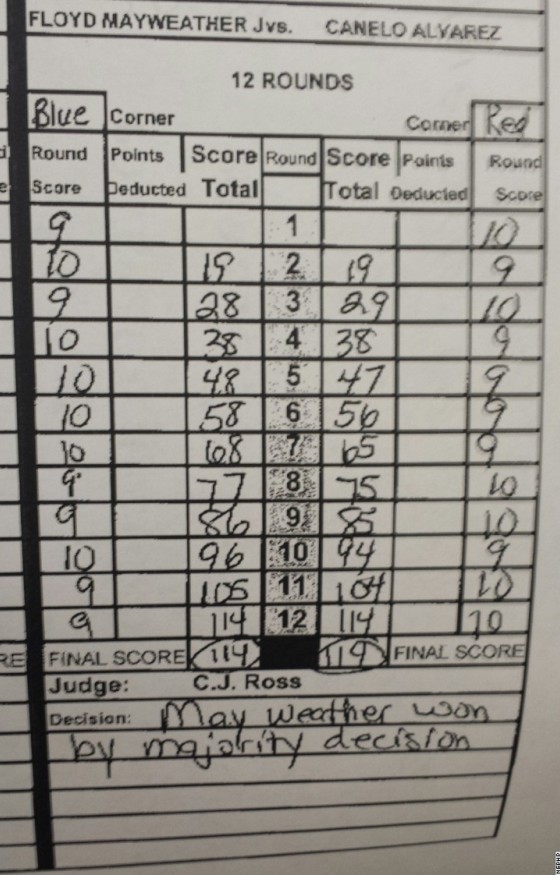 FLOYD MAYWEATHER Jvs. CANELO ALVAREZ
12 ROUNDS
Blue Corner Corner Red
Round Points Score Round Score Points Round
Score Deducted Total Total Deducted Score
9 1 10
10 19 2 19 9
9 28 3 29 10
10 38 4 38 9
10 48 5 47 9
10 58 6 56 9
10 68 7 65 9
9 77 8 75 10
9 86 9 85 10
10 96 10 94 9
9 105 11 104 10
9 114 12 114 10
RE FINAL SCORE 114 114 FINAL SCORE
Judge: C.J. Ross
Decision: May weather won
by majority decision